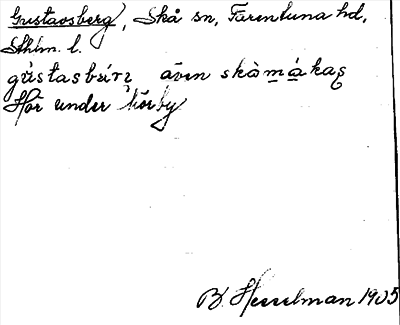 Gustavsberg, Skå sn, Färentuna hd,
Sthlm. l.
gústasbærı även skàmákaʂ
Hör under Körby
B. Hesselman 1905